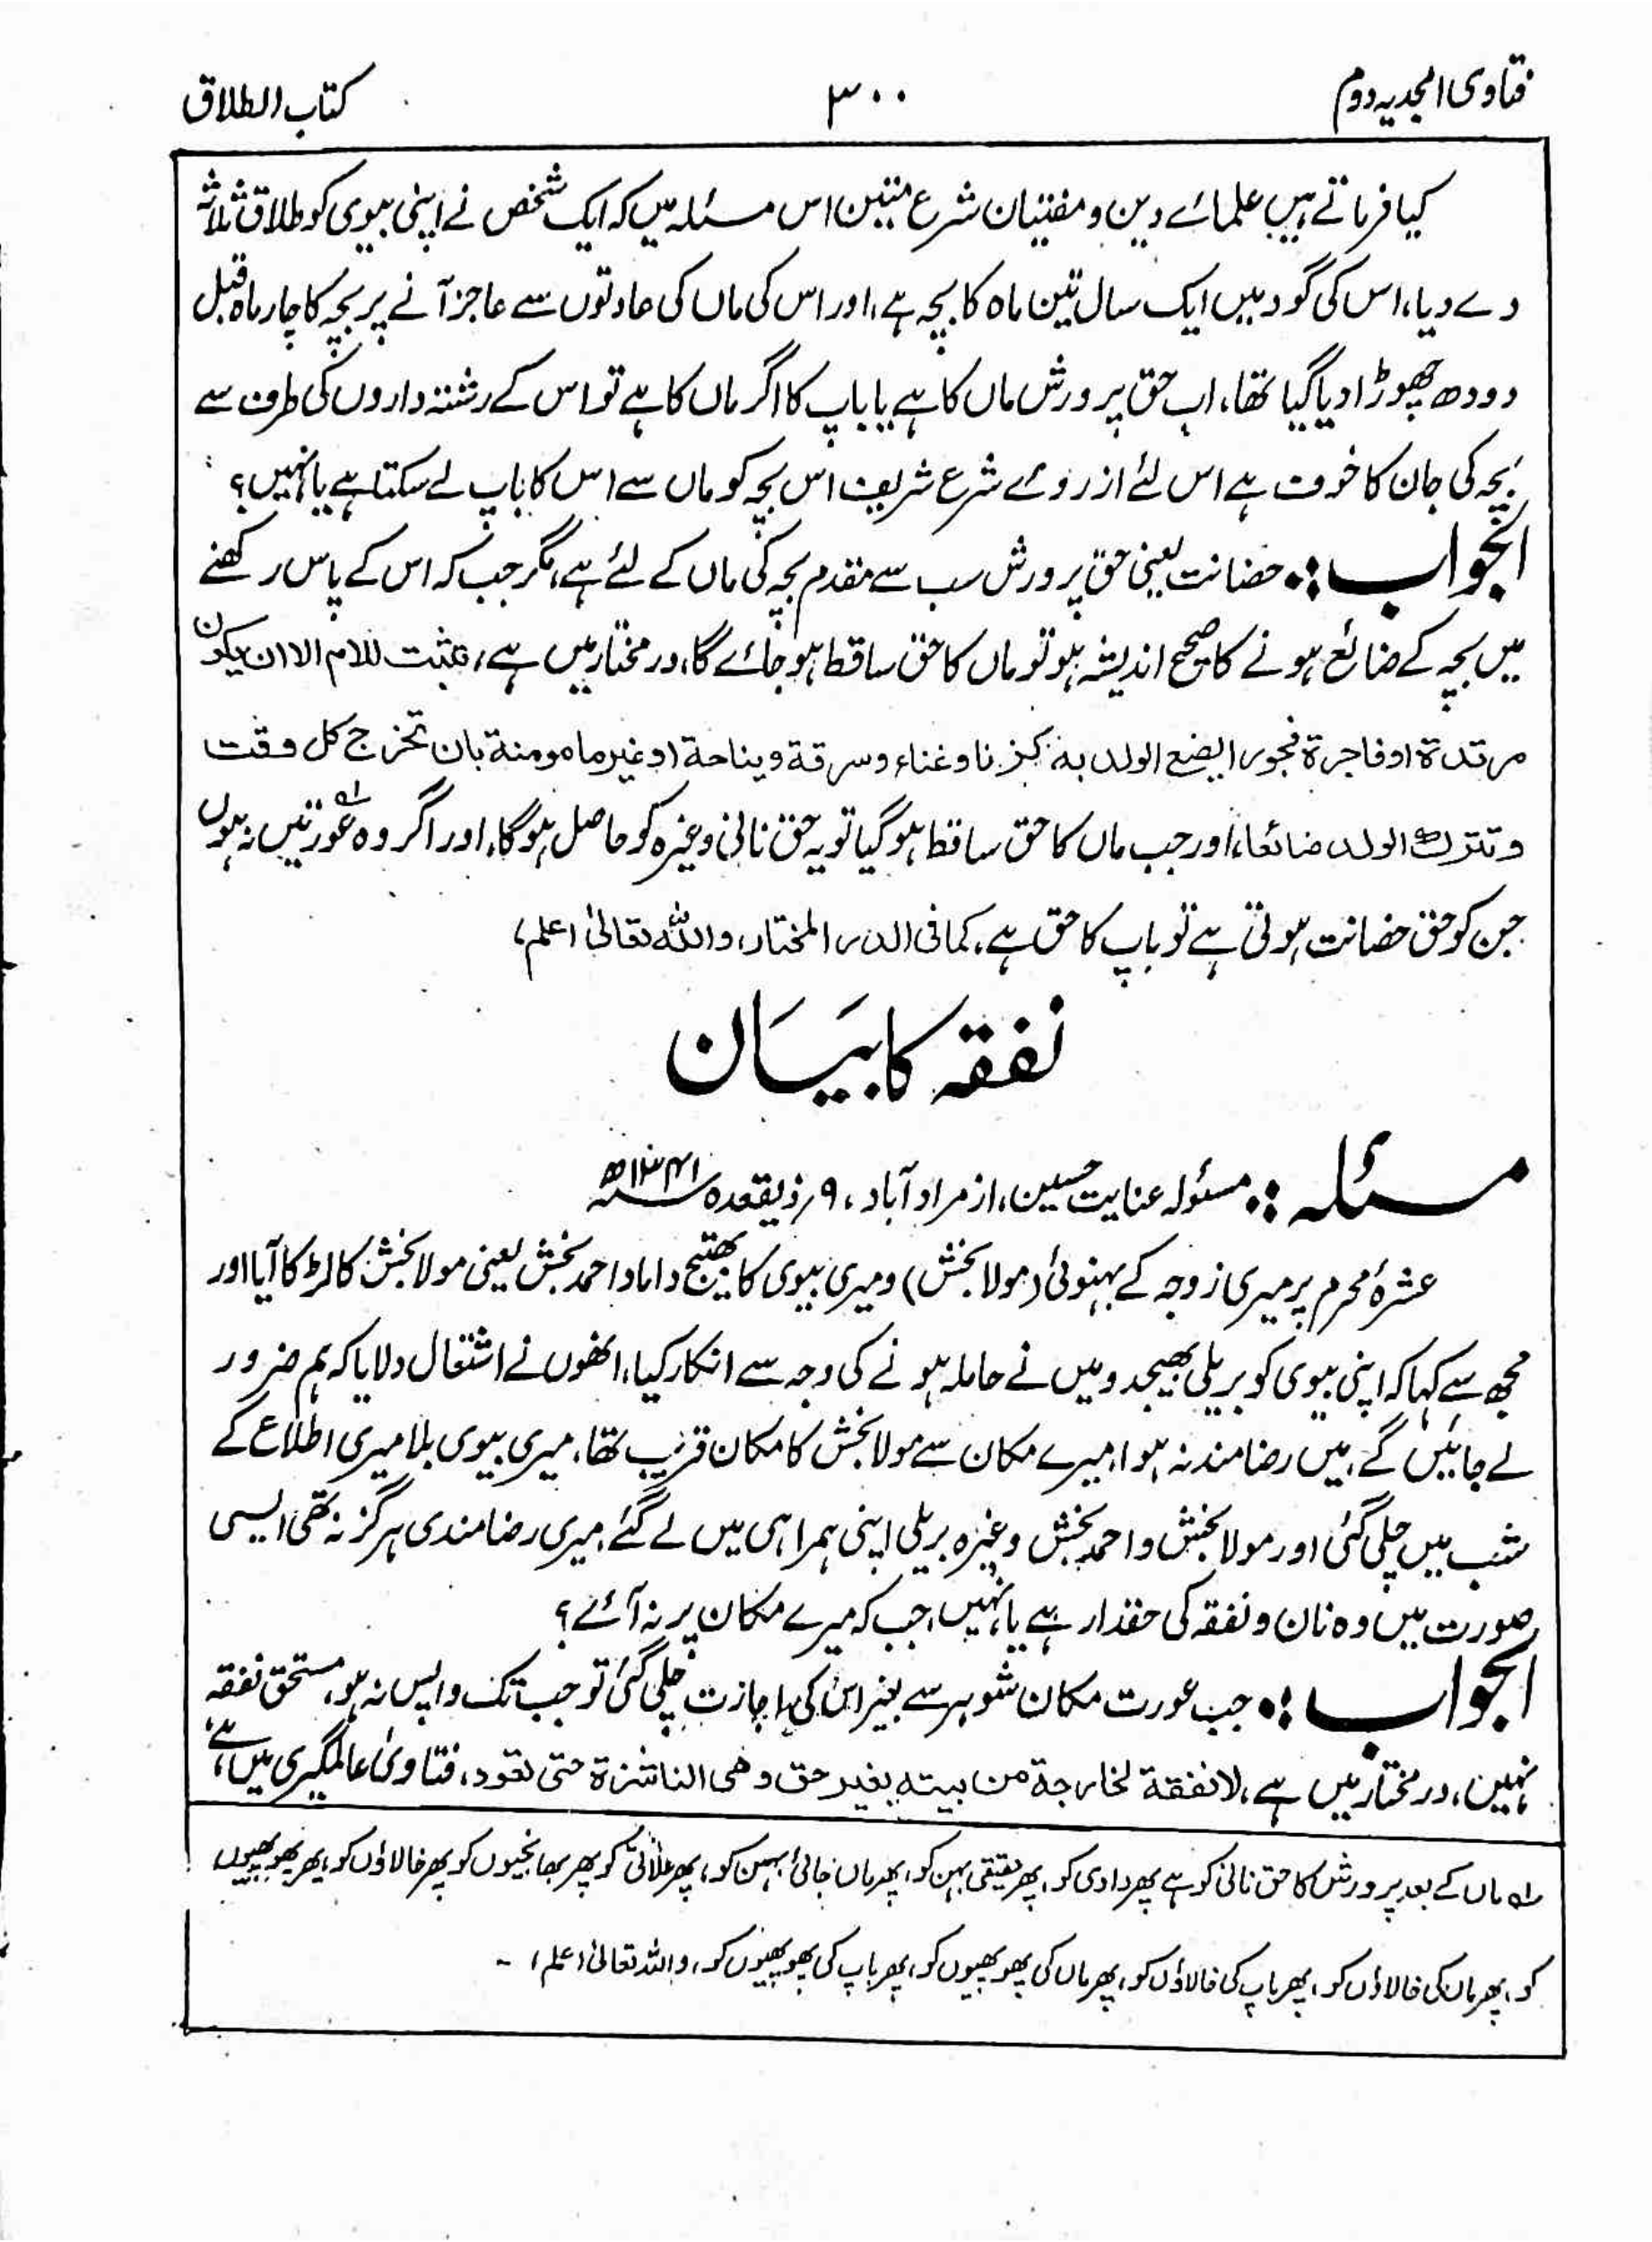 فتاوی امجدیہ دوم
۳۰۰
کتاب الطلاق
کیا فرماتے ہیں علمائے دین و مفتیان شرع متین اس مسئلہ میں کہ ایک شخص نے اپنی بیوی کو طلاق ثلاثہ
دے دیا، اس کی گود میں ایک سال تین ماہ کا بچہ ہے، اور اس کی ماں کی عادتوں سے عاجز آنے پر بچہ کا چار ماہ قبل
دودھ چھوڑا دیا گیا تھا، اب حق پرورش ماں کا ہے یا باپ کا اگر ماں کا ہے تو اس کے رشتہ داروں کی طرف سے
بچہ کی جان کا خوف ہے اس لئے از روئے شرع شریف اس بچہ کو ماں سے اس کا باپ لے سکتا ہے یا نہیں؟
الجواب :۔ حضانت یعنی حق پرورش سب سے مقدم بچہ کی ماں کے لئے ہے، مگر جب کہ اس کے پاس رکھنے
میں بچہ کے ضائع ہونے کا صحیح اندیشہ ہو تو ماں کا حق ساقط ہو جائے گا، در مختار میں ہے، تثبت للام الا ان یکون
مرتدۃ او فاجرۃ فجورا یضع الولد بہ کزنا وغناء وسرقۃ ونیاحۃ او غیر مامومنۃ بان تخرج کل وقت
وتترک الولد ضائعا، اور جب ماں کا حق ساقط ہو گیا تو یہ حق نانی وغیرہ کو حاصل ہوگا، اور اگر وہ عورتیں نہ ہوں ؎۱
جن کو حق حضانت ہوتی ہے تو باپ کا حق ہے، کما فی الدر المختار، واللہ تعالیٰ اعلم،
نفقہ کا بیَان
مسئلہ :۔ مسئولہ عنایت حسین، از مراد آباد، ۹؍ ذیقعدہ ۱۳۴۱ھ
عشرۂ محرم پر میری زوجہ کے بہنوئی (مولا بخش) و میری بیوی کا بھتیج داماد احمد بخش یعنی مولا بخش کا لڑکا آیا اور
مجھ سے کہا کہ اپنی بیوی کو بریلی بھیجدو میں نے حاملہ ہونے کی وجہ سے انکار کیا، انھوں نے اشتعال دلایا کہ ہم ضرور
لے جائیں گے، میں رضامند نہ ہوا، میرے مکان سے مولا بخش کا مکان قریب تھا، میری بیوی بلا میری اطلاع کے
شب میں چلی گئی اور مولا بخش و احمد بخش وغیرہ بریلی اپنی ہمراہی میں لے گئے، میری رضامندی ہرگز نہ تھی ایسی
صورت میں وہ نان و نفقہ کی حقدار ہے یا نہیں، جب کہ میرے مکان پر نہ آئے؟
الجواب :۔ جب عورت مکان شوہر سے بغیر اس کی اجازت چلی گئی تو جب تک واپس نہ ہو، مستحق نفقہ
نہیں، در مختار میں ہے، لا نفقۃ لخارجۃ من بیتہ بغیر حق وھی الناشزۃ حتی تعود، فتاویٰ عالمگیری میں ہے،
؎۱ ماں کے بعد پرورش کا حق نانی کو ہے پھر دادی کو، پھر حقیقی بہن کو، پھر ماں جائی بہن کو، پھر علاتی کو پھر بھانجیوں کو پھر خالاؤں کو، پھر پھوپھیوں
کو، پھر ماں کی خالاؤں کو، پھر باپ کی خالاؤں کو، پھر ماں کی پھوپھیوں کو، پھر باپ کی پھوپھیوں کو، واللہ تعالیٰ اعلم، ۔